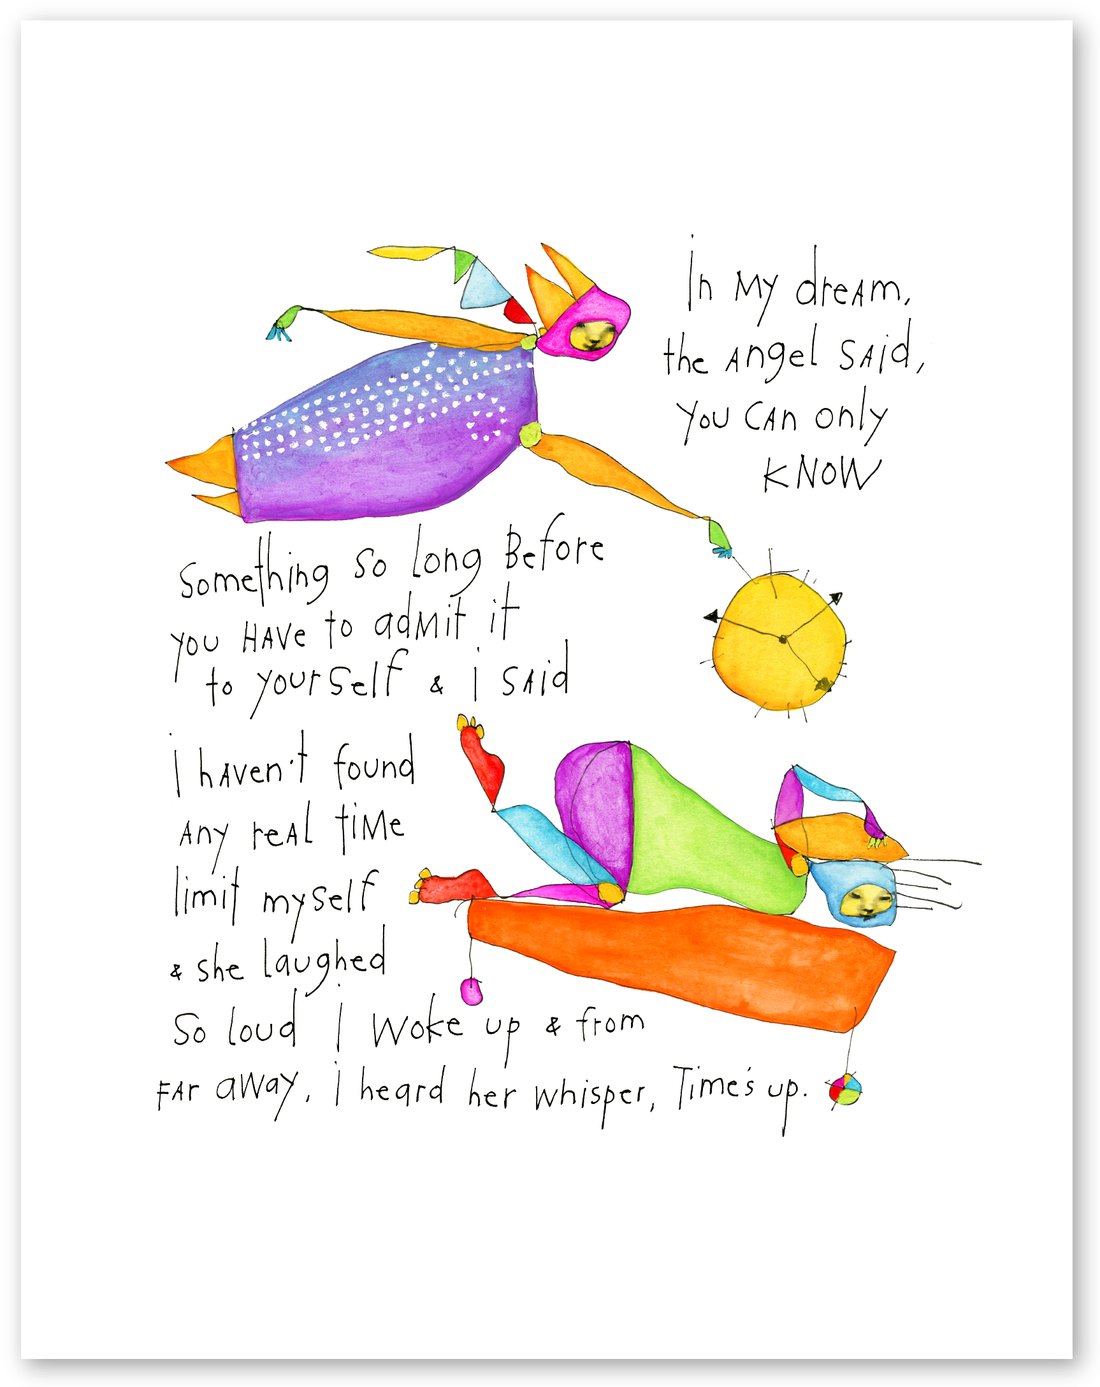 In my dream,
the angel said,
you can only
KNOW
something so long before
you have to admit it
to yourself & i said
i haven't found
any real time
limit myself
& she laughed
so loud i woke up & from
far away, i heard her whisper, Time's up.